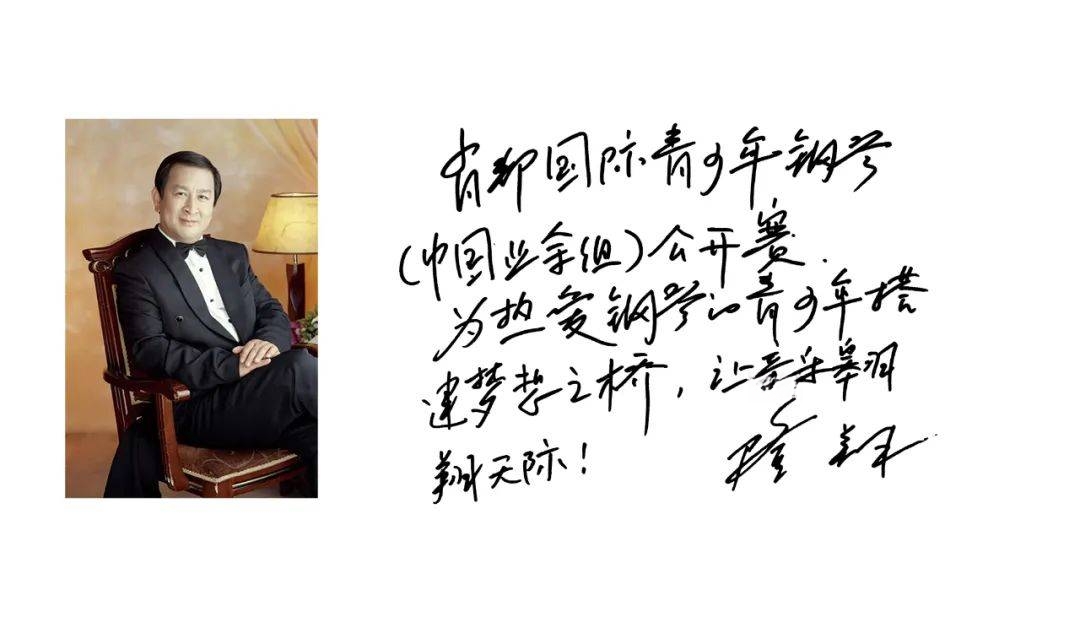 首都国际青少年钢琴
(中国业余组)公开赛.
为热爱钢琴的青少年搭
建梦想之桥,让音乐翱
翔天际!